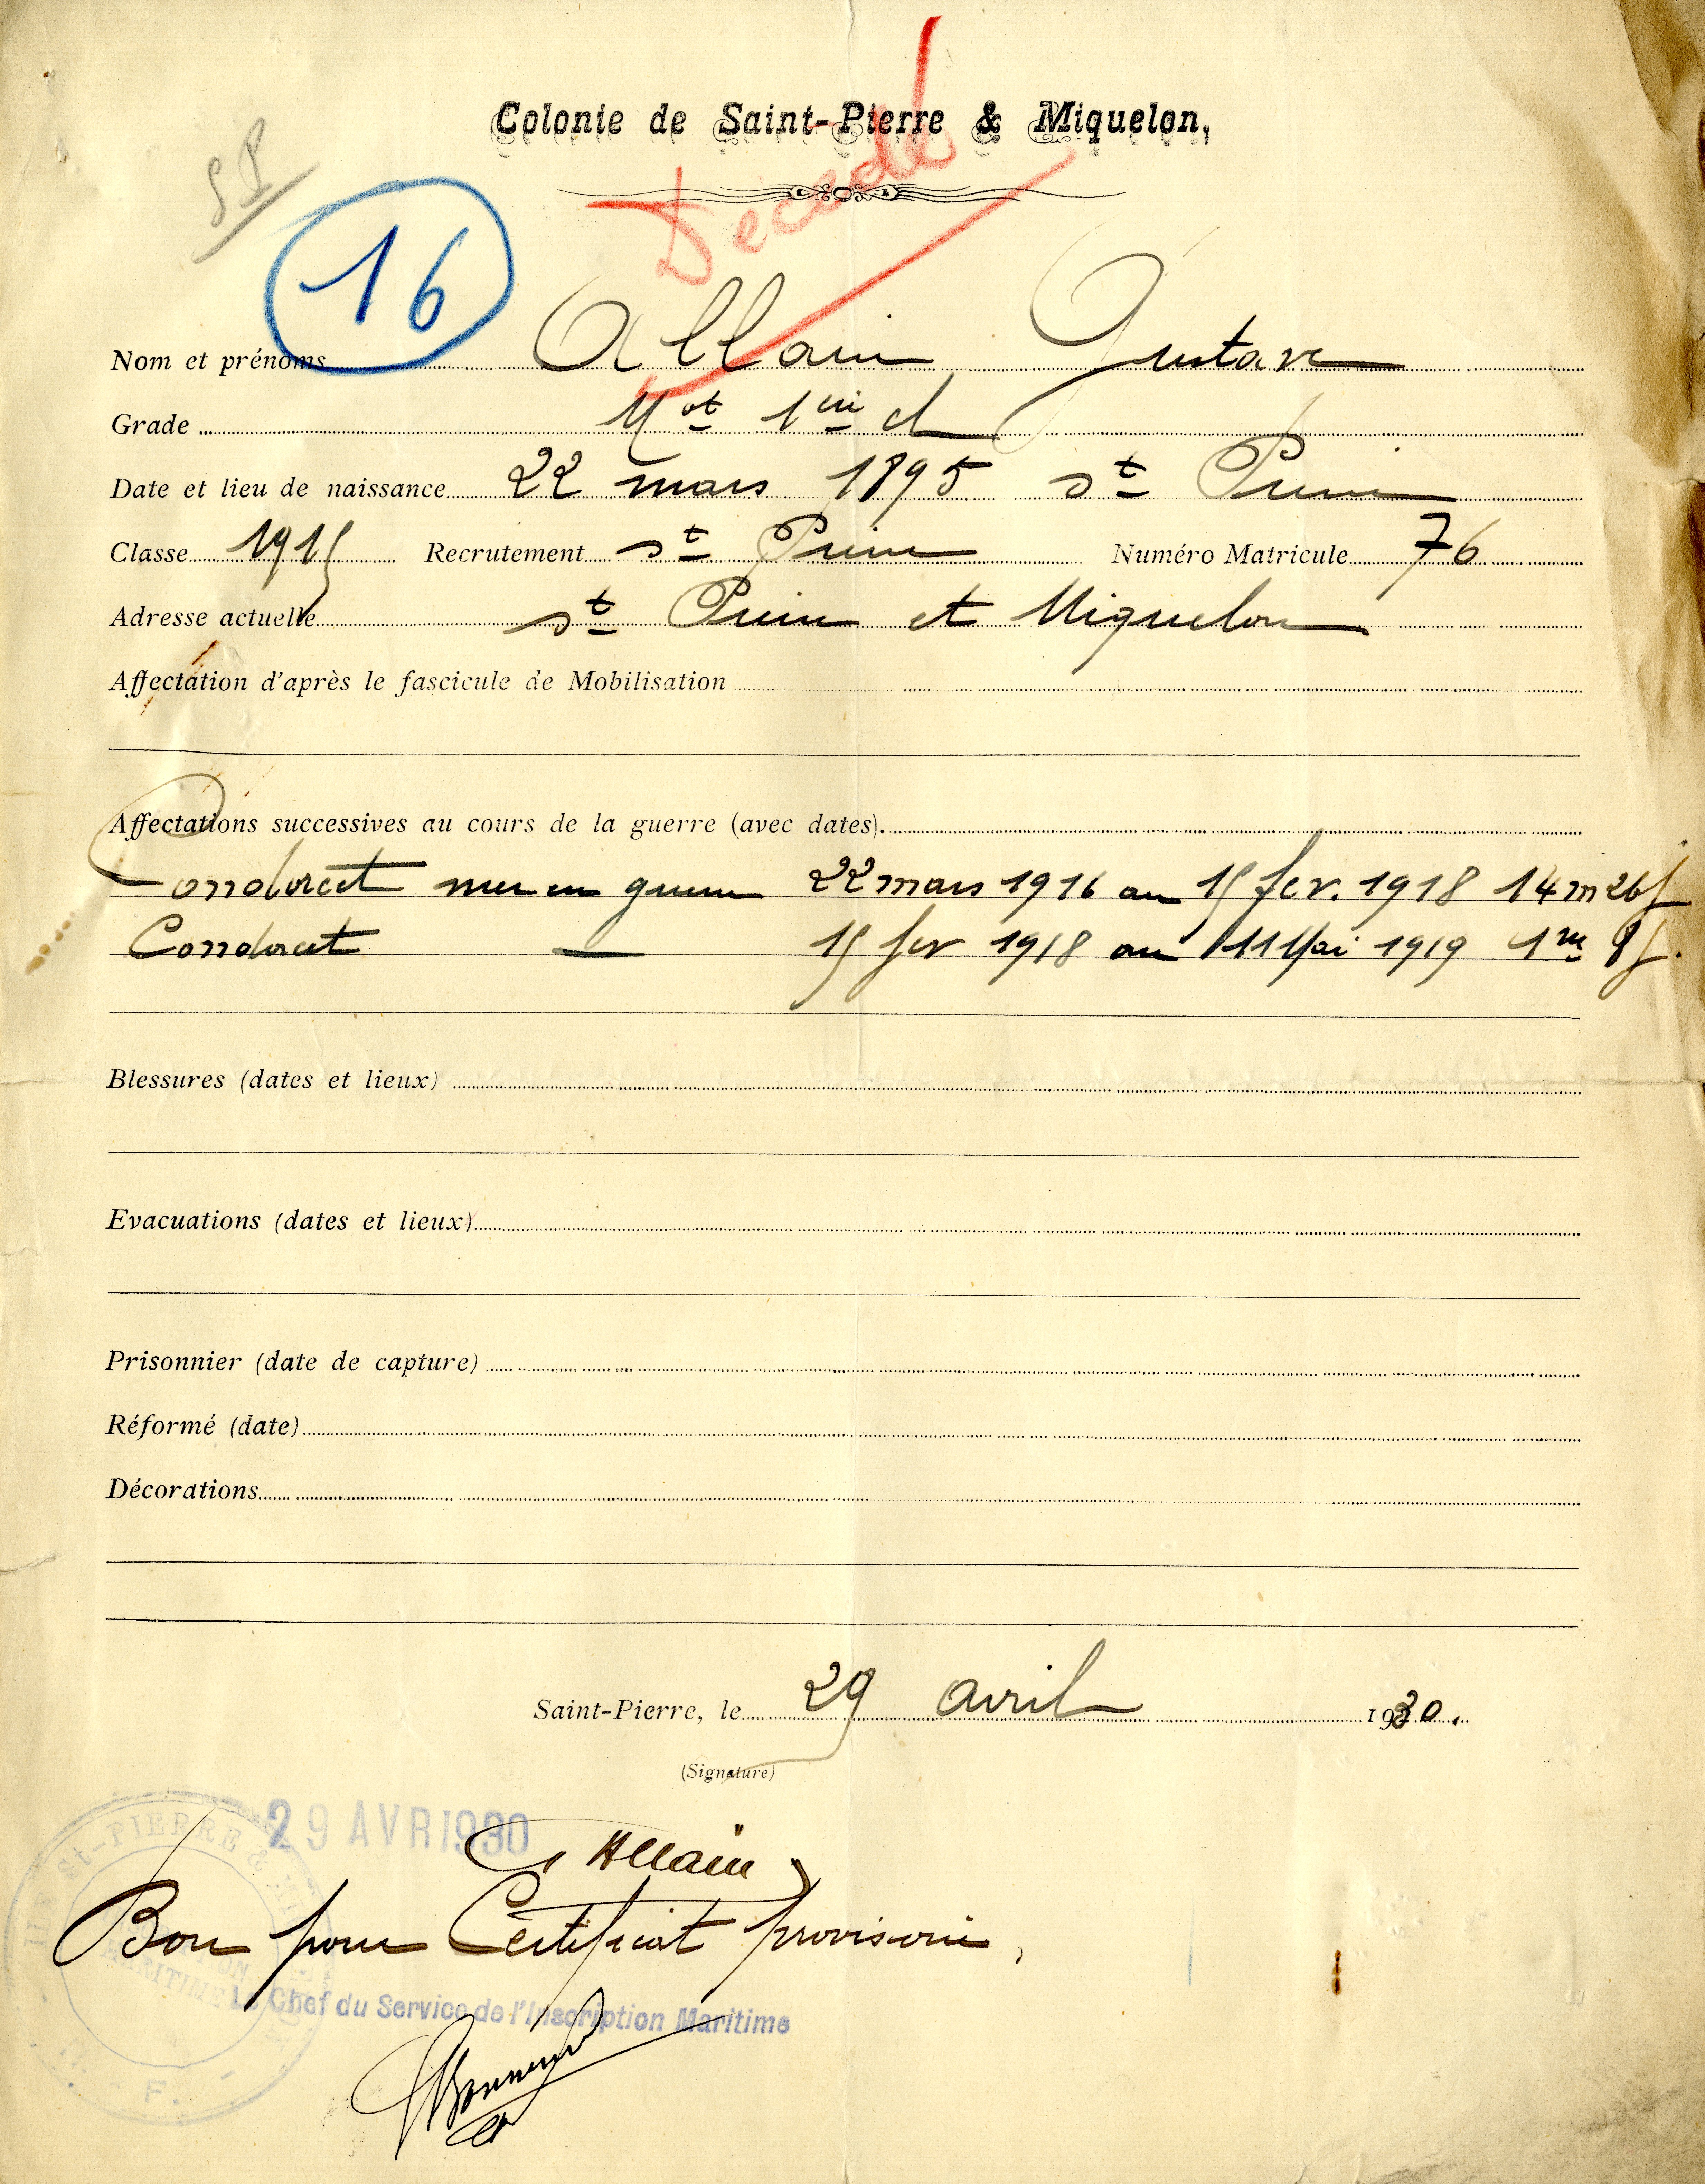 Colonie de Saint-Pierre & Miquelon.
Décédé
SP
16
Nom et prénoms Allain Gustave
Grade Mot 1ère cl
Date et lieu de naissance 22 mars 1895 St Pierre
Classe 1915 Recrutement St Pierre Numéro Matricule 76
Adresse actuelle St Pierre et Miquelon
Affectation d'après le fascicule de Mobilisation
Affectations successives au cours de la guerre (avec dates).
Condorcet mer en guerre 22 mars 1916 au 15 fev. 1918 14 m 26 j
Condorcet — 15 fev 1918 au 11 Mai 1919 1 m 8 j.
Blessures (dates et lieux)
Evacuations (dates et lieux)
Prisonnier (date de capture)
Réformé (date)
Décorations
Saint-Pierre, le 29 avril 1930.
(Signature)
29 AVR 1930
G Allain
Bon pour Certificat provisoire,
Le Chef du Service de l'Inscription Maritime